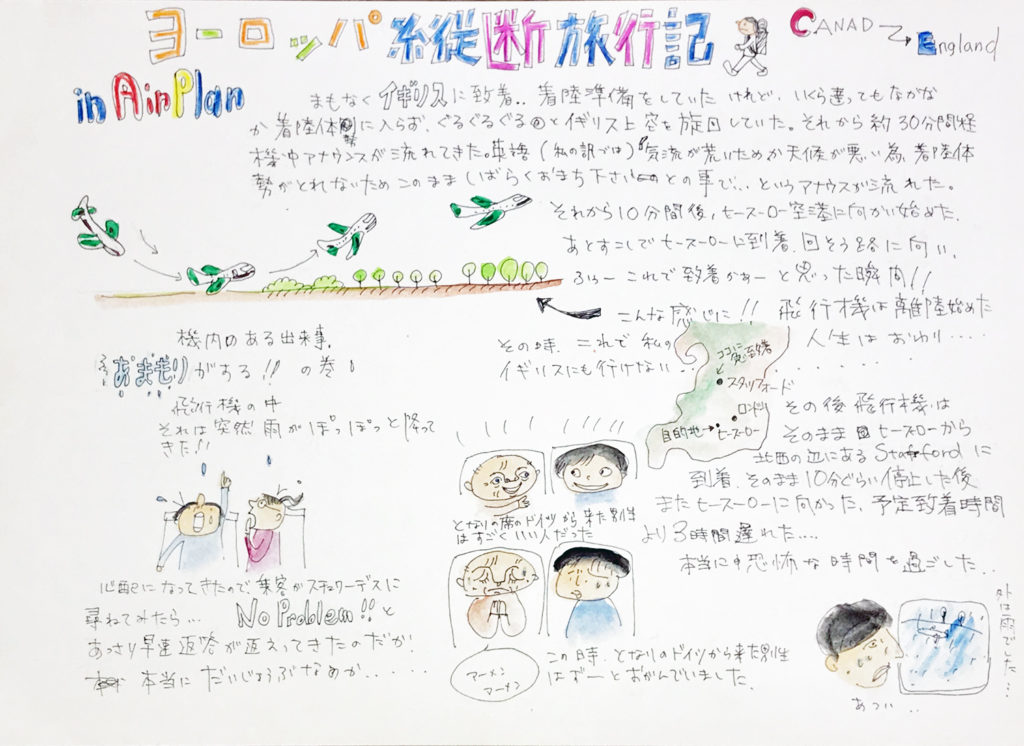 ヨーロッパ縦断旅行記
CANADA → England
in AirPlan
まもなくイギリスに致着.. 着陸準備をしていたけれど、いくら違ってもなかな
か着陸体勢に入らず、ぐるぐるぐるとイギリス上空を旋回していた。それから約30分間経
機中アナウンスが流れてきた。英語(私の訳では)気流が荒いためか天候が悪い為、着陸体
勢がとれないためこのまましばらくおまち下さいとの事で、、というアナウスが流れた。
それから10分間後、ヒースーロー空港に向かい始めた。
あとすこしでヒースーローに到着、回そう路に向い、
ふぅー これで致着かぁーと思った瞬間!!
こんな感じに!! 飛行機は離陸始めた
その時、これで私の人生はおわり.....
イギリスにも行けない.......
ココに急致着
スタッフォード
ロンドン
目的地→ヒースーロー
機内のある出来事、
あまもりがする!! の巻!
飛行機の中
それは突然雨がぽっぽっと降って
きた!!
心配になってきたので乗客がスチュワーデスに
尋ねてみたら... No Problem!! と
あっさり早速返答が返えってきたのだが、
本当にだいじょうぶなのか.......
となりの席のドイツから来た男性
はすごくいい人だった
アーメン
アーメン
この時、となりのドイツから来た男性
はずーとおがんでいました。
その後飛行機は
そのままヒースーローから
北西の辺にあるStaffordに
到着、そのまま10分ぐらい停止した後
またヒースーローに向かった、予定致着時間
より3時間遅れた....
本当に恐怖な時間を過ごした...
外は雨でした...
あつい..